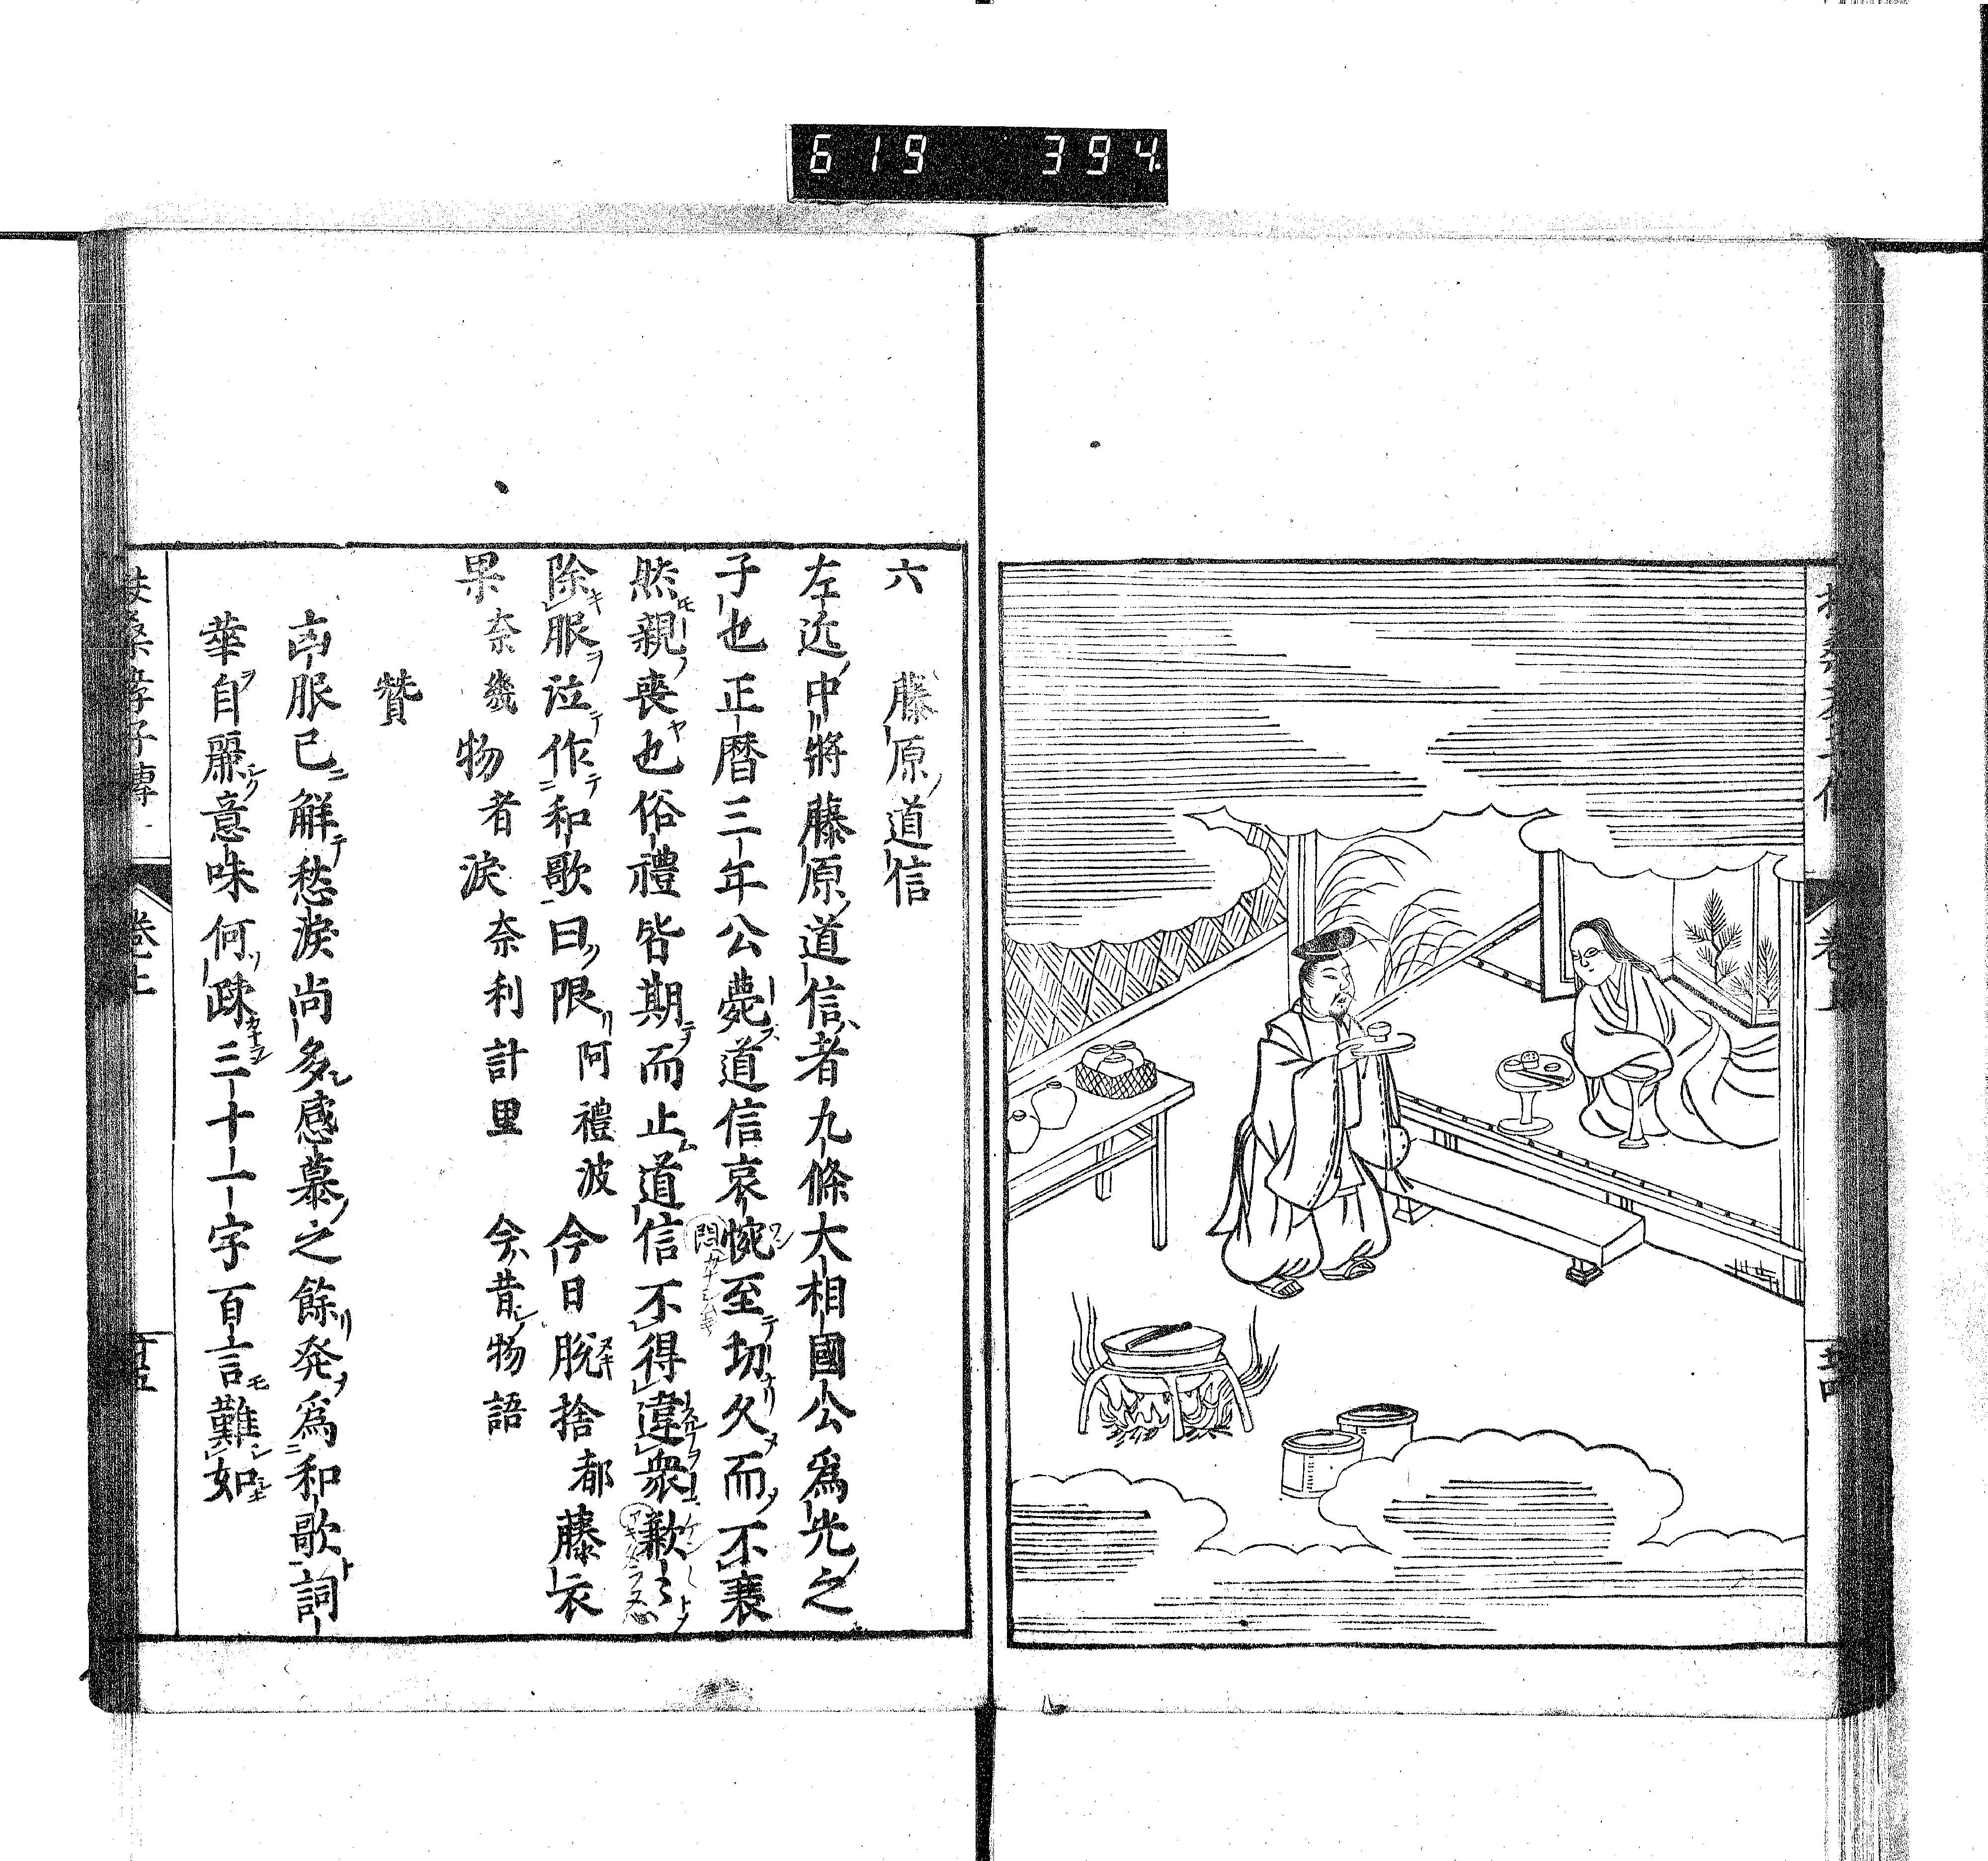 619 394
六 藤原道信
左近中將藤原道信者九條大相國公爲光之
子也正暦三年公薨道信哀惋至切久而不衰
然親喪也俗禮皆期而止道信不得違衆歉〻
除服泣作和歌曰限阿禮波今日脫捨都藤衣
果奈幾物者淚奈利計里 今昔物語
贊
凶服已觧愁淚尚多感慕之餘発爲和歌詞
華自麗意味何疎三十一字百言難如
扶桑孝子傳
卷上